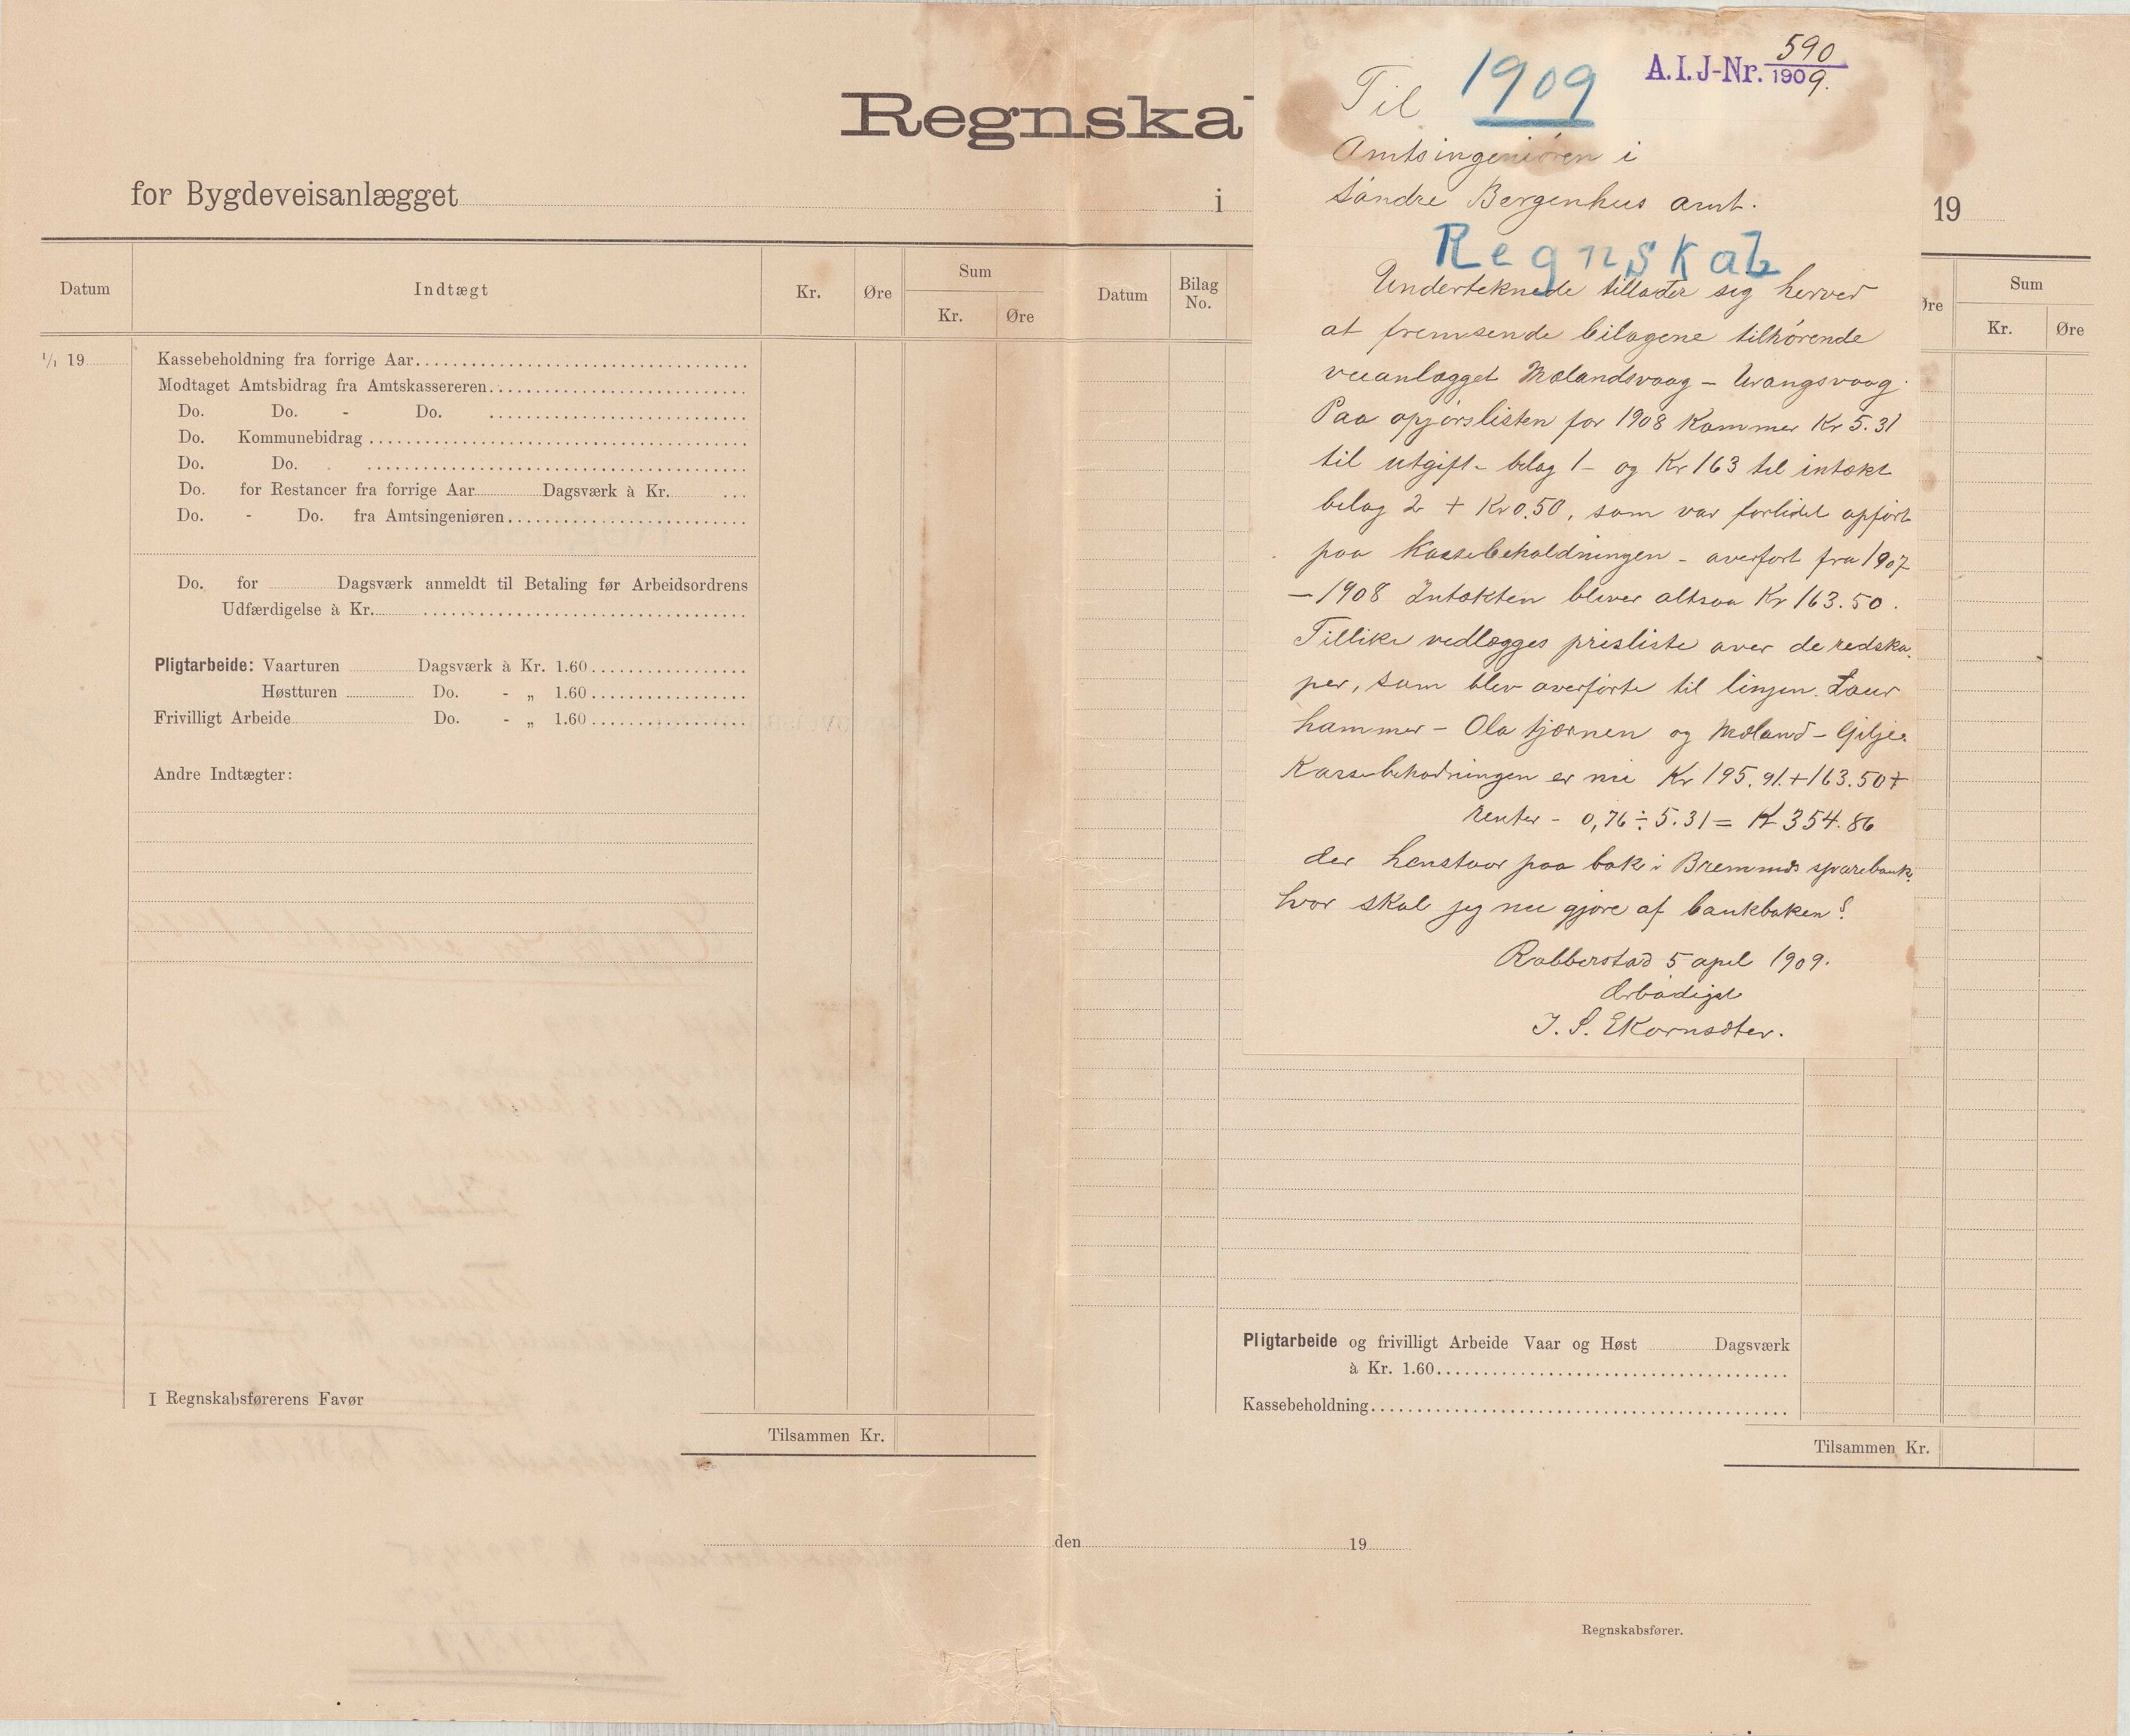 Regnska
for Bygdeveisanlægget i
19
Datum Indtægt Kr. Øre Sum Kr. Øre
1/1 19
Kassebeholdning fra forrige Aar
Modtaget Amtsbidrag fra Amtskassereren
Do. Do. - Do.
Do. Kommunebidrag
Do. Do.
Do. for Restancer fra forrige Aar Dagsværk à Kr.
Do. - Do. fra Amtsingeniøren
Do. for Dagsværk anmeldt til Betaling før Arbeidsordrens
Udfærdigelse à Kr.
Pligtarbeide: Vaarturen Dagsværk à Kr. 1.60
Høstturen Do. - „ 1.60
Frivilligt Arbeide Do. - „ 1.60
Andre Indtægter:
I Regnskabsførerens Favør
Tilsammen Kr.
Datum Bilag No.
Øre Sum Kr. Øre
A.I.J-Nr. 590/1909.
Til 1909
Amtsingeniøren i
Søndre Bergenhus amt.
Regnskab
Underteknede tillader sig herved
at fremsende bilagene tilhørende
veianlægget Mølandsvaag – Urangsvaag.
Paa opgjørslisten for 1908 kommer Kr 5.31
til utgift – bilag 1 – og Kr 163 til intækt
bilag 2 + Kr 0.50, som var forlidet opført
paa Kassebeholdningen – overført fra 1907
– 1908 Intækten bliver altsaa Kr 163.50.
Tillike vedlægges prisliste over de redska-
per, som blev overførte til linjen. Laur
hammer – Ola tjørnen og Møland – Gilje.
Kassebehodningen er nu Kr 195.91. + 163.50 +
renter – 0,76 ÷ 5.31 = Kr 354.86
der henstaar paa bok i Bremnes sparebank.
hvor skal jeg nu gjøre af bankboken?
Røbberstad 5 april 1909.
Ærbødigst
J. S. Ekornsæter.
Pligtarbeide og frivilligt Arbeide Vaar og Høst Dagsværk
à Kr. 1.60
Kassebeholdning
Tilsammen Kr.
den 19
Regnskabsfører.